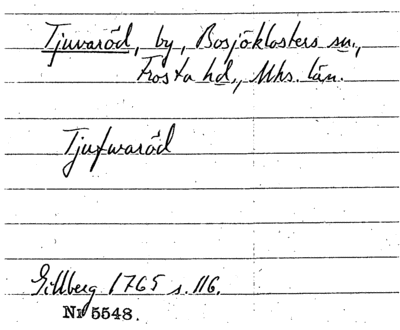 Tjuvaröd, by, Bosjöklosters sn.,
Frosta hd., Mhs. län.
Tjufwaröd
Gillberg 1765 s. 116.
Nr 5548.